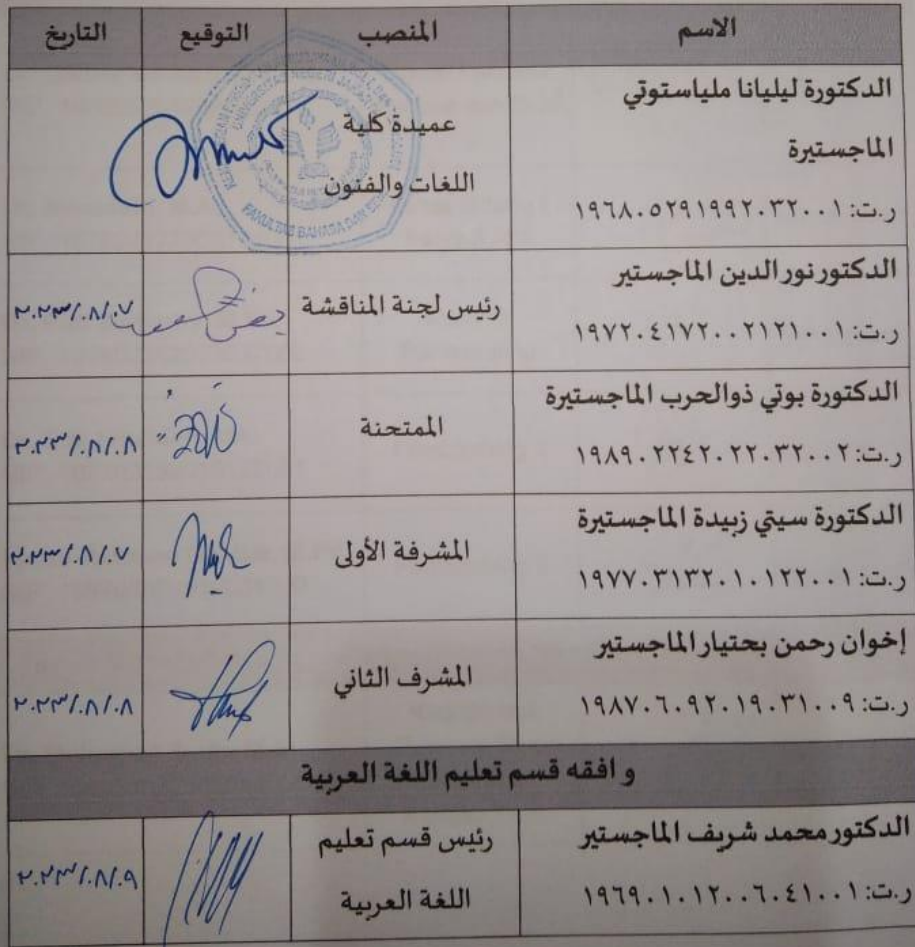 الاسم المنصب التوقيع التاريخ
الدكتورة ليليانا ملياستوتي
الماجستيرة
ر.ت: ١٩٦٨٠٥٢٩١٩٩٢٠٣٢٠٠١
عميدة كلية
اللغات والفنون
UNIVERSITAS NEGERI JAKARTA
FAKULTAS BAHASA DAN SENI
الدكتور نور الدين الماجستير
ر.ت: ١٩٧٢٠٤١٧٢٠٠٢١٢١٠٠١
رئيس لجنة المناقشة
٢٠٢٣/٠٨/٠٧
الدكتورة بوتي ذوالحرب الماجستيرة
ر.ت: ١٩٨٩٠٢٢٤٢٠٢٢٠٣٢٠٠٢
الممتحنة
٢٠٢٣/٠٨/٠٨
الدكتورة سيتي زبيدة الماجستيرة
ر.ت: ١٩٧٧٠٣١٣٢٠١٠١٢٢٠٠١
المشرفة الأولى
٢٠٢٣/٠٨/٠٧
إخوان رحمن بحتيار الماجستير
ر.ت: ١٩٨٧٠٦٠٩٢٠١٩٠٣١٠٠٩
المشرف الثاني
٢٠٢٣/٠٨/٠٨
و افقه قسم تعليم اللغة العربية
الدكتور محمد شريف الماجستير
ر.ت: ١٩٦٩٠١٠١٢٠٠٦٠٤١٠٠١
رئيس قسم تعليم
اللغة العربية
٢٠٢٣/٠٨/٠٩